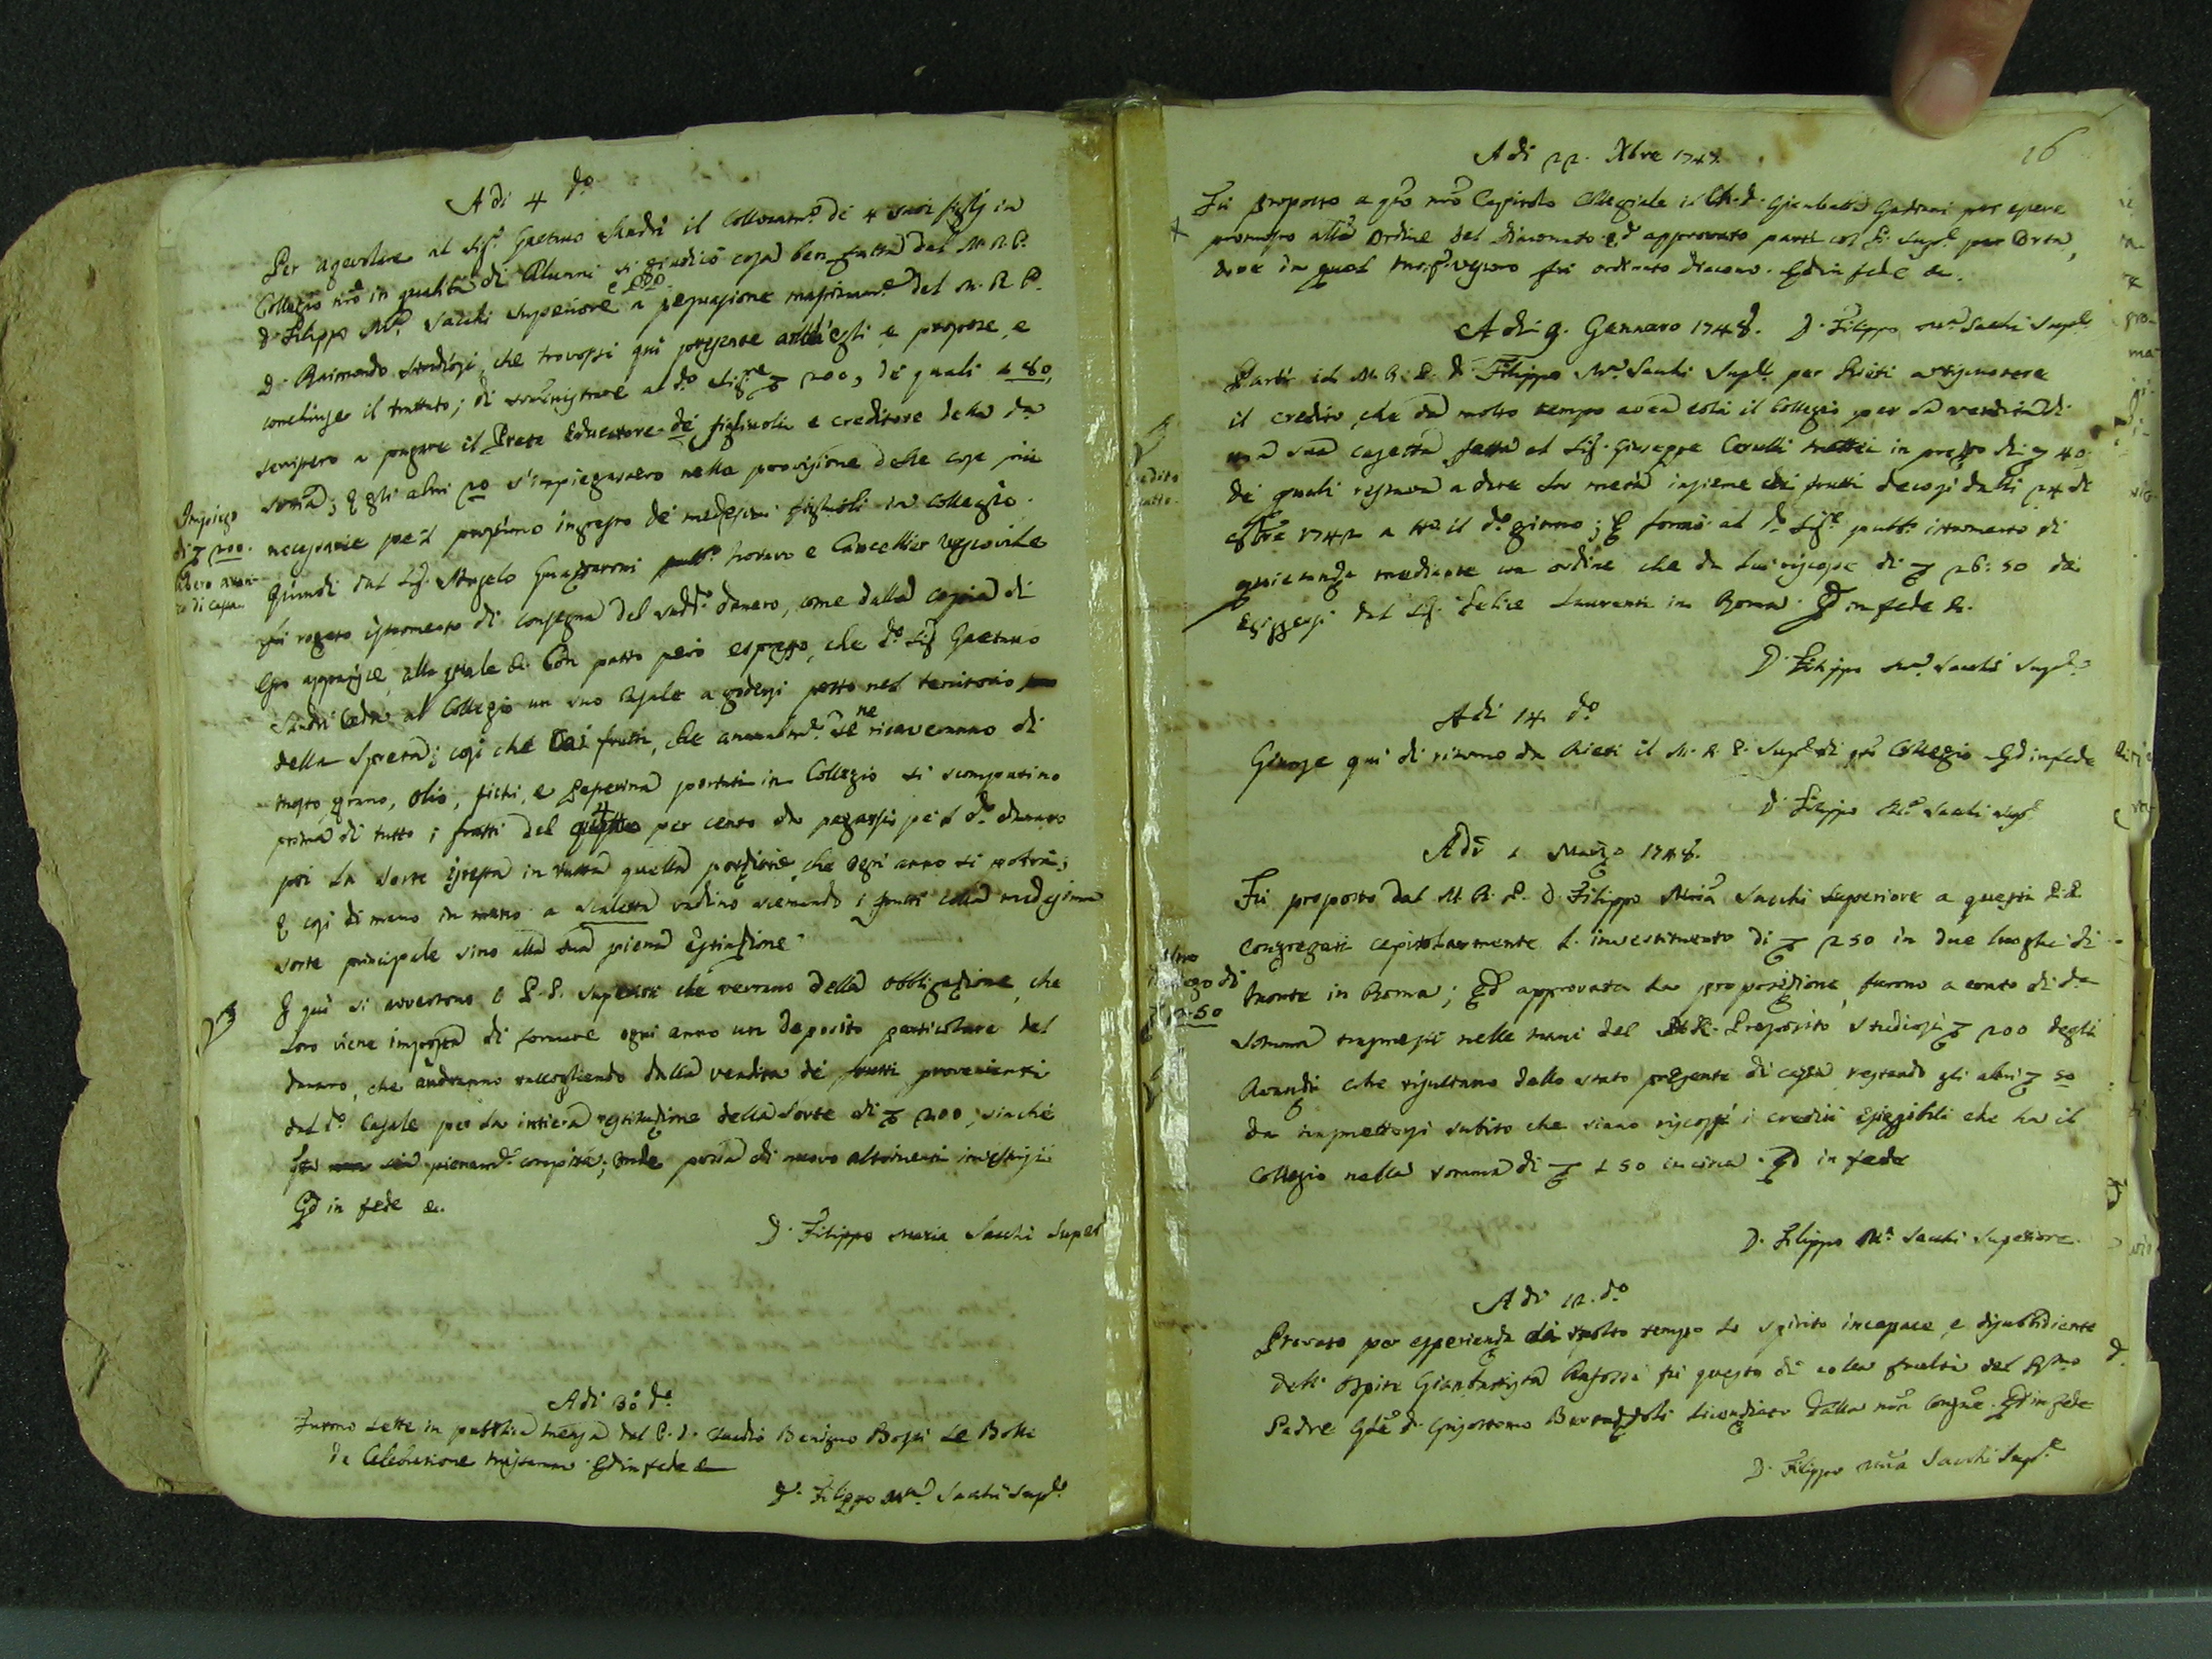 A di 4 d.o
Per agevolare al Sig.r Gaetano Sludri il Collocam.o di 4 suoi figlj in
Collegio nr̃o in qualità di Alunni si giudicò cosa ben fatta dal M. R. P.
e PP.
D. Filippo M.a Sacchi Superiore a persuasione massimam.e del M. R. P.
D. Raimondo Studiosi, che trovossi qui presente anch'egli e propose, e
conchiuse il trattato; di somministrare al d.o Sig.re 200, de quali 180
servissero a pagare il Prete Educatore de figliuoli e creditore della da
somma; E gli altri 20 s'impiegassero nella provisione delle cose più
necessarie pel prossimo ingresso de medesimi figliuoli in Collegio.
Impiego
di 200.
Quindi dal Sig. Angelo Guazzaroni pubb.o Notaro e Cancellier Vescovile
fù rogato istromento di consegna del sudd.o danaro, come dalla copia di
esso apparisce, alla quale &. Con patto però espresso, che d.o Sig Gaetano
Sludri ceda al Collegio un suo Casale a godersi posto nel territorio
della Spreta; così che dai frutti, che annualm.e se ne ricaveranno di
mosto, grano, olio, fichi, e portati in Collegio si scomputino
prima di tutto i frutti del 4 per cento da pagarsi pel d.o danaro
poi la sorte istessa in tutta quella porzione, che ogni anno si potrà;
E così di mano in mano a scaletta vadino scemando i frutti colla medesima
sorte principale sino alla sua piena Estinzione.
E quì si avvertono i P.P. Superiori che verrano della obbligazione, che
loro viene imposta di formare ogni anno un deposito particolare del
danaro, che andranno raccogliendo dalla vendita de frutti provenienti
dal d.o Casale per la intiera restituzione della sorte di 200, sinchè
sia pienam.e compita; onde possa di nuovo altrimenti investirsi
Ed in fede &.
D. Filippo Maria Sacchi Super
A di 30 d.o
Furono lette in pubblica mensa dal P. D. Claudio Benigno Bossi le Bolle
de Celebratione Missarum. Ed in fede &
D. Filippo M.a Sacchi Sup.e
16
A di 22. Xbre 1747.
Fù proposto a qto nr̃o Capitolo Collegiale il Ch. D. Gianbatta Gadini per essere
promosso all' Ordine del Diaconato. E.d approvato partì col P. Sup.e per Orta,
dove da quel Vescovo fù ordinato Diacono. Ed in fede &.
A di 9. Gennaro 1748. D. Filippo M.a Sacchi Sup.e
Partì il M. R. P. D. Filippo M.a Sacchi Sup.e per Rieti a riscuotere
il credito, che da molto tempo avea colà il Collegio per la vendita di
una sua casetta fatta al Sig. Giuseppe Cerulli in prezzo di 40
de quali restava a dare la metà insieme coi frutti decorsi dalli 24 di
8bre 1742 a tto il d.o giorno; E formò al d.o Sig.e pubb.o istromento di
quietanza mediante un ordine che da lui riscosse di 26:50 da
esiggersi dal Sig. Felice Laurenti in Roma. Ed in fede &.
D. Filippo M.a Sacchi Sup.e
A di 14 d.o
Giunse qui di ritorno da Rieti il M. R. P. Sup.e di qto Collegio. Ed in fede
D. Filippo M.a Sacchi Sup.e
A di 1 Marzo 1748.
Fù proposto dal M. R. P. D. Filippo Maria Sacchi Superiore a questi P.P.
Congregati capitolarmente l'investimento di 250 in due luoghi di
Monte in Roma; Ed approvata la proposizione furono a conto di d.a
somma trasmessi nelle mani del P. Preposito Studiosi 200 degli
Avanzi che risultano dallo stato presente di cassa restando gli altri 50
da trasmettersi subito che siano riscossi i crediti esiggibili che ha il
Collegio nella somma di 150 in circa. Ed in fede
D. Filippo M.a Sacchi Superiore.
A di 12 d.o
Provato per esperienza di molto tempo lo spirito incapace, e disubbidiente
dell' Ospite Gianbattista fù questo dì colla facoltà del R.mo
Padre Gñle D. Grisostomo Bertazzoli licenziato dalla nr̃a Congne. Ed in fede
D. Filippo Mr̃a Sacchi Sup.e